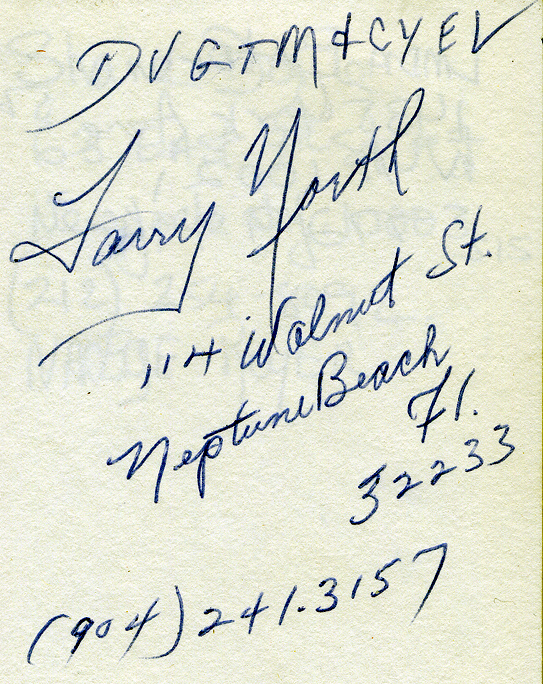 DVGTM&CYEV
Larry North
114 Walnut St.
Neptune Beach
Fl.
32233
(904) 241.3157